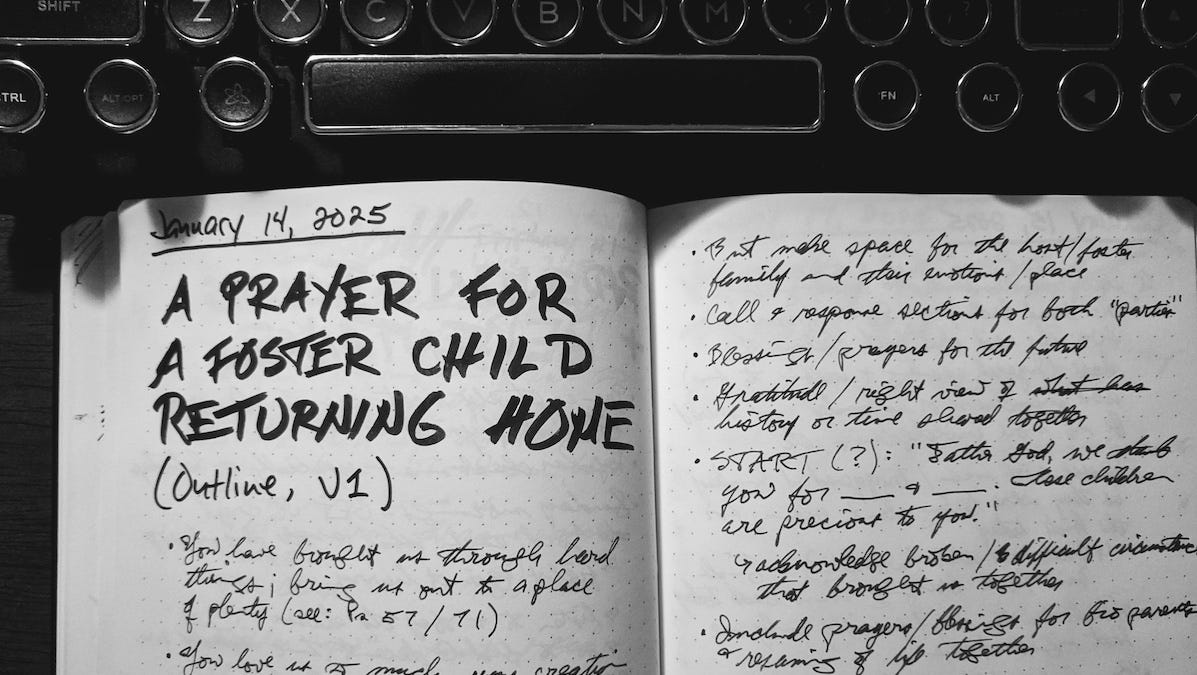 SHIFT
Z X C V B N M
CTRL ALT OPT FN ALT
January 14, 2025
A PRAYER FOR
A FOSTER CHILD
RETURNING HOME
(Outline, V1)
• You have brought us through hard
things; bring us out to a place
of plenty (see: Ps 57 / 71)
• You love us so much, your creation
• But make space for the host/foster
family and their emotions/place
• Call & response sections for both "parties"
• Blessings/prayers for the future
• Gratitude / right view of what has
history or time shared together
• START (?): "Father God, we thank
you for ___ & ___. These children
are precious to you."
↳ acknowledge broken / difficult circumstance
that brought us together
• Include prayers/blessings for bio parents
& resuming of life together